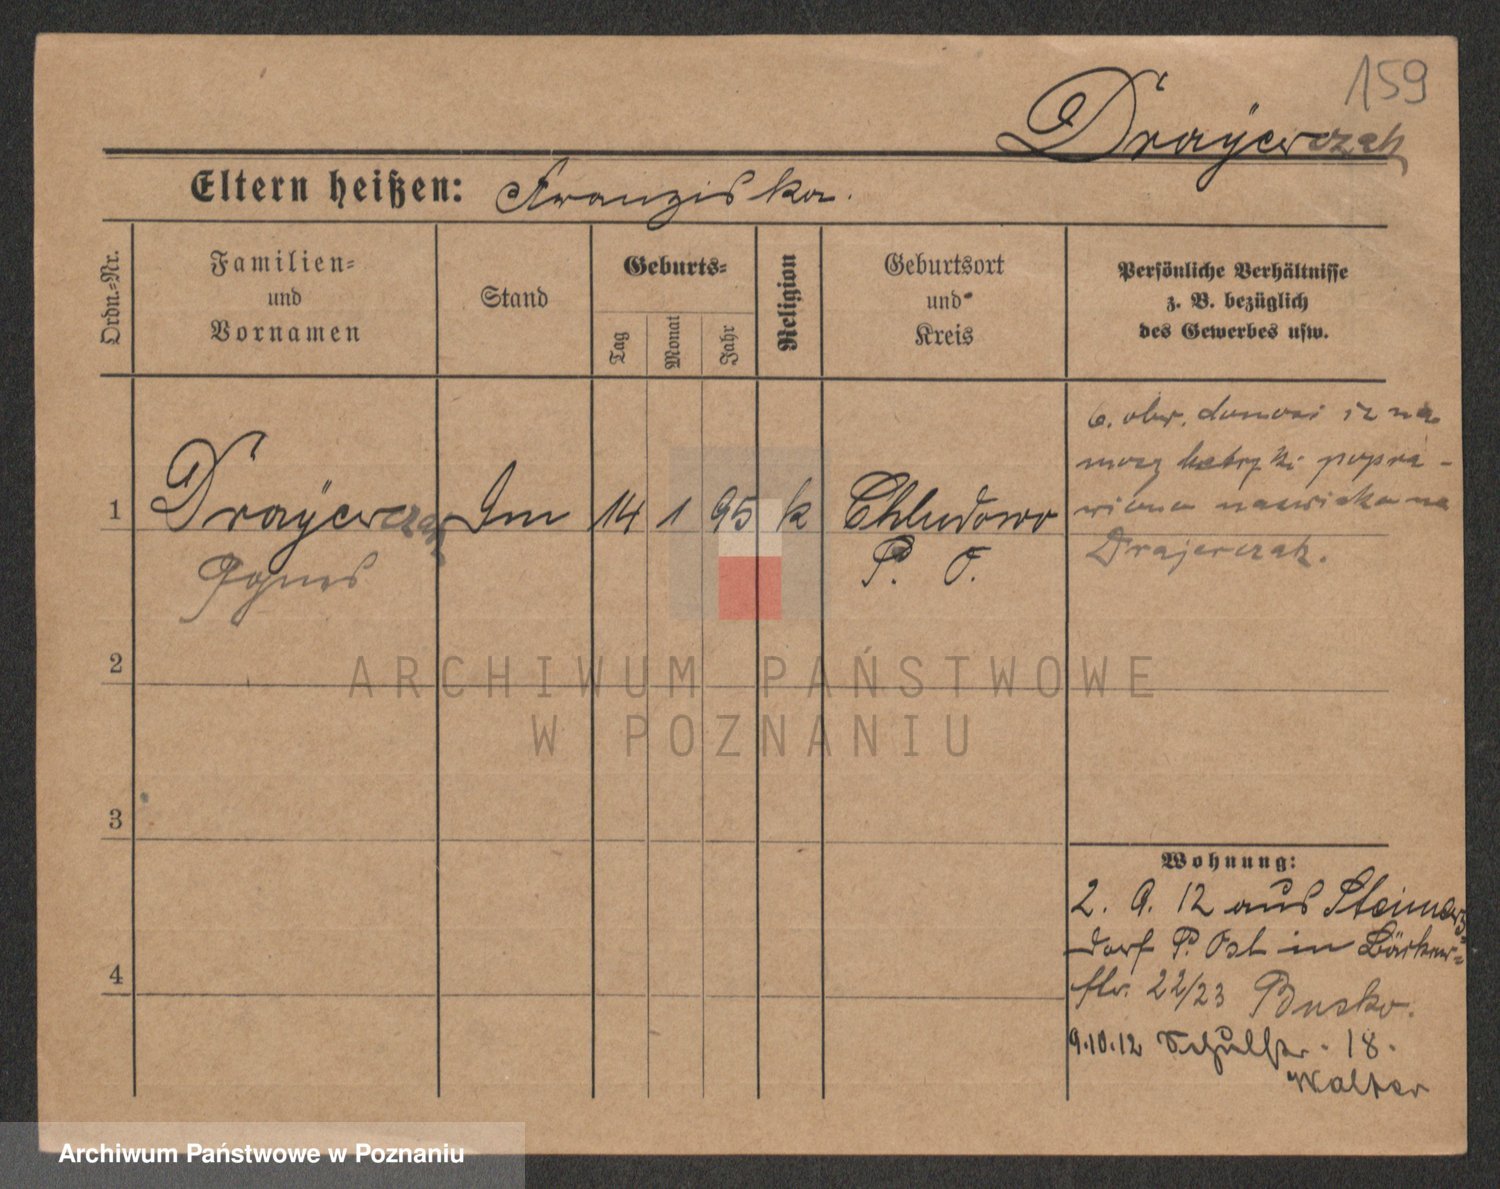 159
Drayerczak
Eltern heißen: Franziska.
Ordn.-Nr.
Familien-
und
Vornamen
Stand
Geburts-
Tag
Monat
Jahr
Religion
Geburtsort
und
Kreis
Persönliche Verhältnisse
z. B. bezüglich
des Gewerbes usw.
1 Drayerczak 14 1 95 k Chludowo
Agnes
P. O.
donosi iz na
popra-
wiono nazwisko na
Drajerczak.
2
3
4
Wohnung:
2. 9. 12 aus Steiners
dorf P. Ost in Bäcker-
str. 22/23 Busko.
9.10.12 Schulstr. 18.
Walter
ARCHIWUM PAŃSTWOWE
W POZNANIU
Archiwum Państwowe w Poznaniu